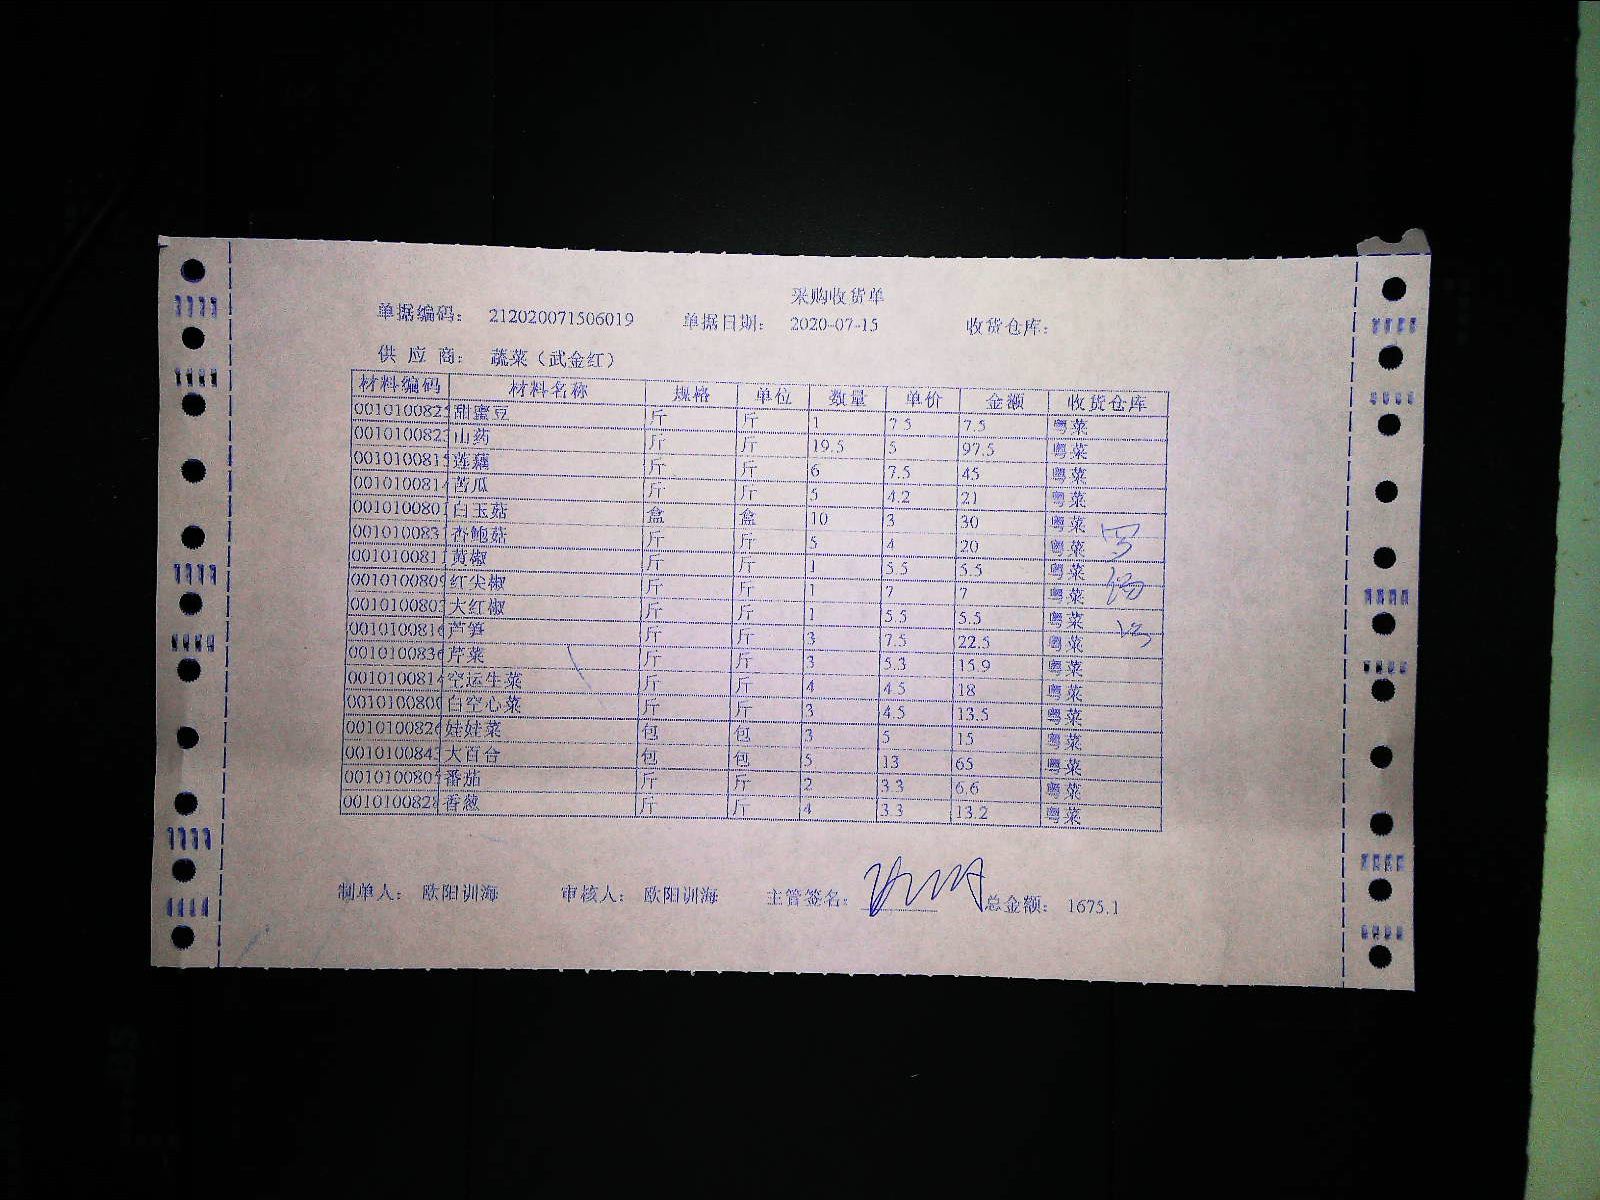 采购收货单
单据编码： 212020071506019 单据日期： 2020-07-15 收货仓库：
供 应 商： 蔬菜（武金红）
材料编码 材料名称 规格 单位 数量 单价 金额 收货仓库
0010100825 甜蜜豆 斤 斤 1 7.5 7.5 粤菜
0010100823 山药 斤 斤 19.5 5 97.5 粤菜
0010100815 莲藕 斤 斤 6 7.5 45 粤菜
0010100814 苦瓜 斤 斤 5 4.2 21 粤菜
001010080 白玉菇 盒 盒 10 3 30 粤菜
001010083 杏鲍菇 斤 斤 5 4 20 粤菜
001010081 黄椒 斤 斤 1 5.5 5.5 粤菜
0010100809 红尖椒 斤 斤 1 7 7 粤菜
0010100803 大红椒 斤 斤 1 5.5 5.5 粤菜
0010100816 芦笋 斤 斤 3 7.5 22.5 粤菜
0010100836 芹菜 斤 斤 3 5.3 15.9 粤菜
0010100814 空运生菜 斤 斤 4 4.5 18 粤菜
0010100800 白空心菜 斤 斤 3 4.5 13.5 粤菜
0010100826 娃娃菜 包 包 3 5 15 粤菜
0010100843 大百合 包 包 5 13 65 粤菜
0010100805 番茄 斤 斤 2 3.3 6.6 粤菜
0010100828 香葱 斤 斤 4 3.3 13.2 粤菜
制单人： 欧阳训海 审核人： 欧阳训海 主管签名： 总金额： 1675.1